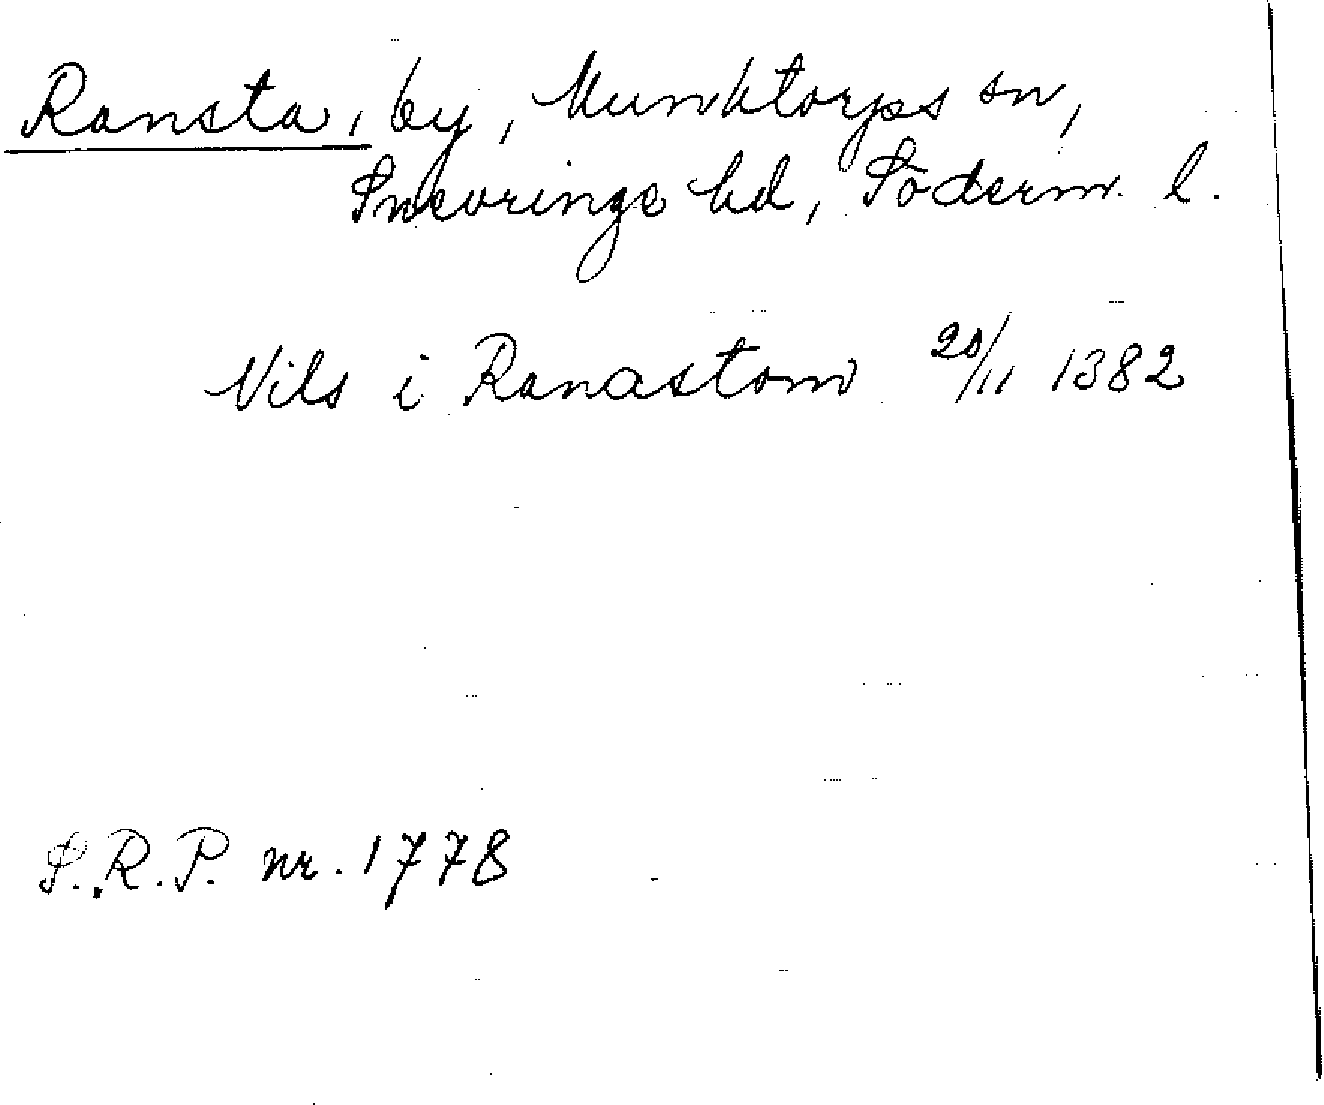 Ransta, by, Munktorps sn,
Snevringe hd, Söderm. l.
Nils i Ranastom 20/11 1382
S.R.P. nr. 1778